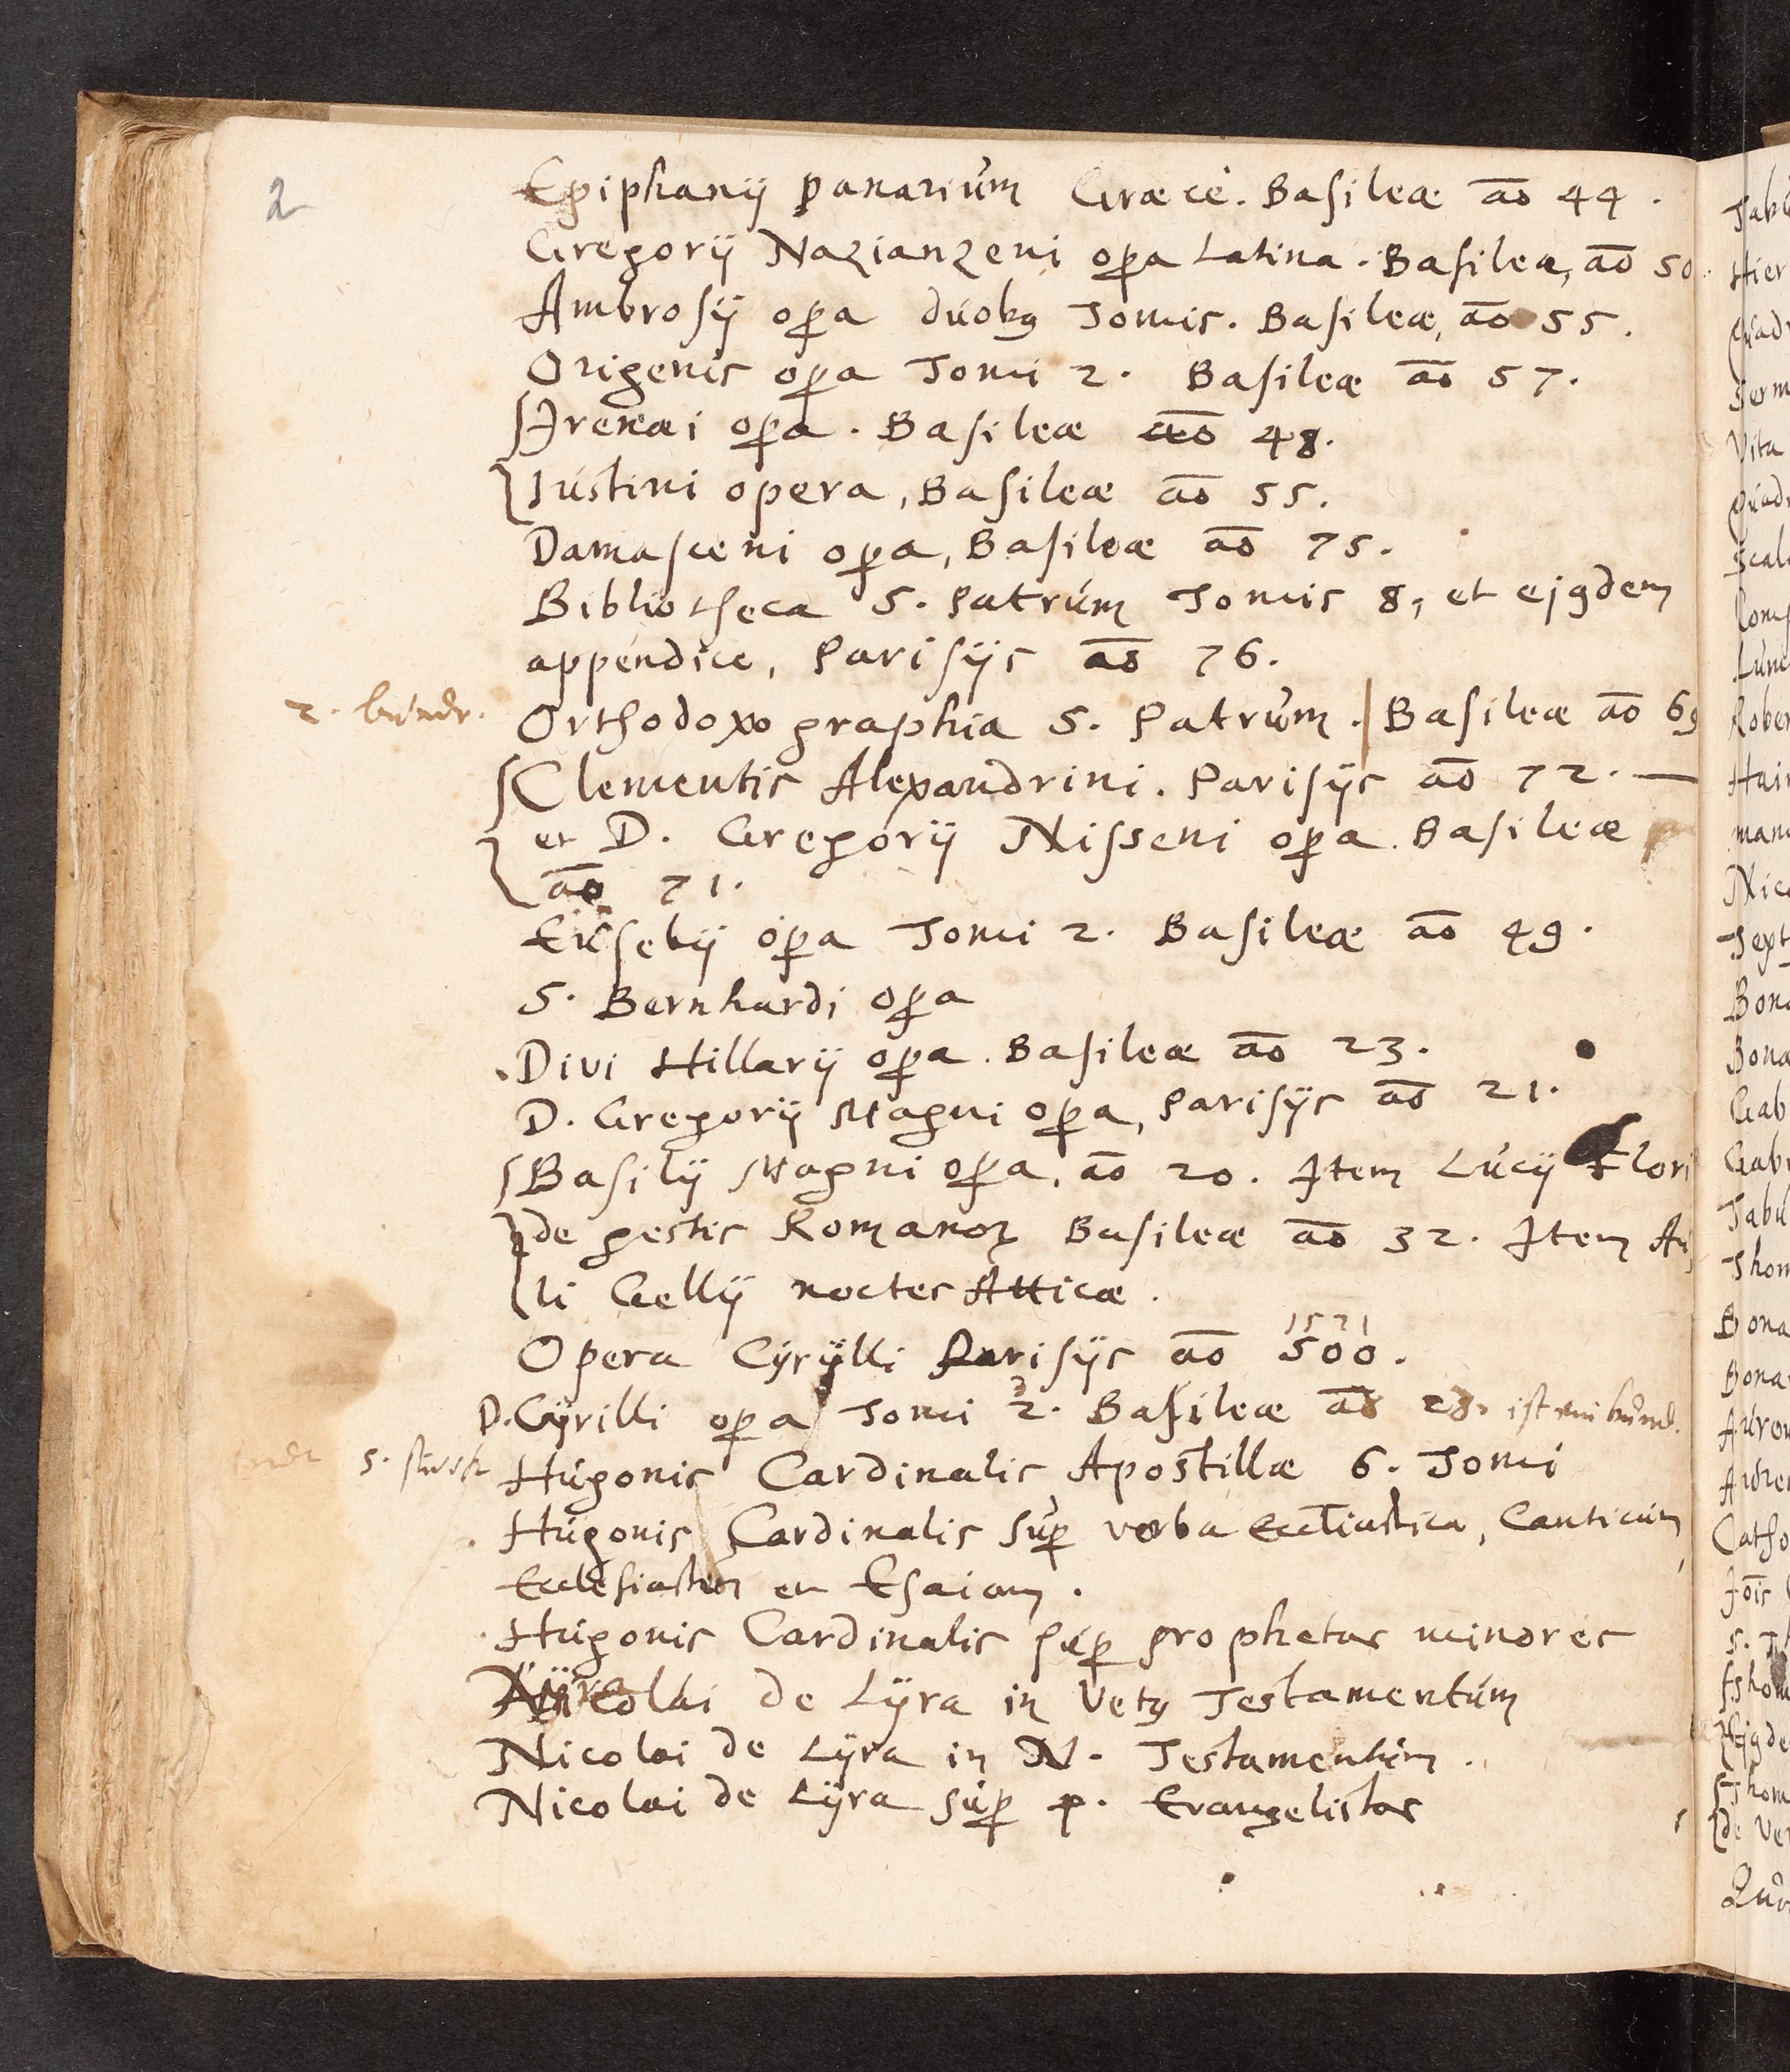 2
Epiphanij panariúm Græcè. Basileæ ao 44.
Gregorij Nazianzeni opa Latina. Basileæ, ao 50.
Ambrosij opa dúobꝫ Tomis. Basileæ, ao 55.
Origenis opa Tomi 2. Basileæ ao 57.
Irenæi opa. Basileæ ao 48.
Iústini opera, Basileæ ao 55.
Damasceni opa, Basileæ ao 75.
Bibliotheca S. Patrúm Tomis 8, et ejꝰdem
appendice, Parisijs ao 76.
2. búndt. Orthodoxographia S. Patrúm. Basileæ ao 69
Clementis Alexandrini. Parisijs ao 72. —
et D. Gregorij Nisseni opa. Basileæ
ao 71.
Eúsebij opa Tomi 2. Basileæ ao 49.
S. Bernhardi opa
Divi Hillarij opa. Basileæ ao 23.
D. Gregorij Magni opa, Parisijs ao 21.
Basilij Magni opa, ao 20. Item Lúcij Flori
de gestis Romanoꝝ Basileæ ao 32. Item Aú
li Gellij noctes Atticæ.
1571
Opera Cÿrÿlli Parisijs ao 500.
D. Cÿrilli opa Tomi 2. Basileæ ao 28. ist ein búnd.
5. stúck Húgonis Cardinalis Apostillæ 6. Tomi
Húgonis Cardinalis súp verba Eccliastica, Canticúm,
Ecclesiasten et Esaiam.
Húgonis Cardinalis súp prophetas minores
Nicolai de Lÿra in Vetꝰ Testamentúm
Nicolai de Lÿra in N. Testamentúm.
Nicolai de Lÿra súp p. Evangelistas